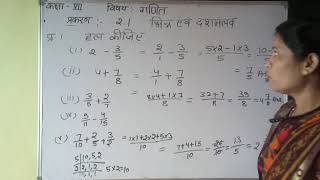 कक्षा - VII विषय:- गणित
प्रकरण :- 2.1 भिन्न एवं दशमलव
प्र. 1 हल कीजिए
(i) 2 - 3/5 = 2/1 - 3/5 = 5×2-1×3/5 = 10-
(ii) 4 + 7/8 = 4/1 + 7/8 = 7/5
= 8×4+1×7/8 = 32+7/8 = 39/8 = 4 7/8
(iii) 3/5 + 2/7
(iv) 9/11 - 4/15
(v) 7/10 + 2/5 + 3/2 = 1×7+2×2+5×3/10 = 7+4+15/10 = 26/10 = 13/5 = 2
5|10,5,2
5×2=10